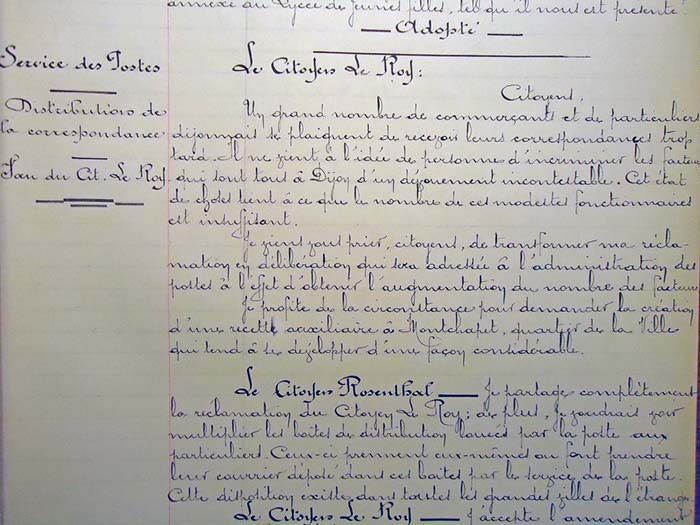 annexé au Lycée de Jeunes filles, tel qu'il nous est présenté.
— Adopté —
Service des Postes
Distribution de
la correspondance
Vœu du Cit. Le Roy.
Le Citoyen Le Roy :
Citoyens,
Un grand nombre de commerçants et de particuliers
dijonnais se plaignent de recevoir leurs correspondances trop
tard. Il ne vient à l'idée de personne d'incriminer les facteurs
qui sont tous à Dijon d'un dévouement incontestable. Cet état
de choses tient à ce que le nombre de ces modestes fonctionnaires
est insuffisant.
Je viens vous prier, citoyens, de transformer ma récla-
mation en délibération qui sera adressée à l'administration des
postes à l'effet d'obtenir l'augmentation du nombre des facteurs
Je profite de la circonstance pour demander la création
d'une recette auxiliaire à Montchapet, quartier de la Ville
qui tend à se développer d'une façon considérable.
Le Citoyen Rosenthal — Je partage complètement
la réclamation du Citoyen Le Roy ; de plus, je voudrais voir
multiplier les boîtes de distribution louées par la poste aux
particuliers. Ceux-ci prennent eux-mêmes ou font prendre
leur courrier déposé dans ces boîtes par le service de la poste.
Cette disposition existe dans toutes les grandes villes de l'étranger
Le Citoyen Le Roy — J'accepte l'amendement